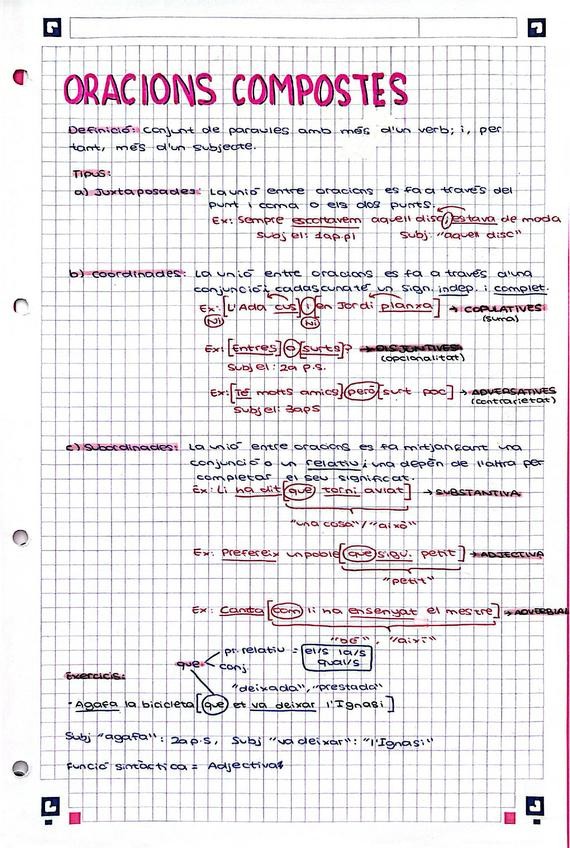 ORACIONS COMPOSTES
Definició: conjunt de paraules amb més d'un verb; i, per
tant, més d'un subjecte.
Tipus:
a) Juxtaposades: La unió entre oracions es fa a través del
punt i coma o els dos punts.
Ex: Sempre escoltavem aquell disc; estava de moda
Subj el: 1ap.pl Subj: "aquell disc"
b) coordinades: La unió entre oracions es fa a través d'una
conjunció i cadascuna té un sign. indep. i complet.
Ex: [L'Ada cus] i [en Jordi planxa] → COPULATIVES
Ni Ni (suma)
Ex: [Entres] o [surts]? → DISJUNTIVES
(opcionalitat)
Subj el: 2a p.s.
Ex: [Té molts amics] però [surt poc] → ADVERSATIVES
(contrarietat)
Subj el: 3aps
c) Subordinades: La unió entre oracions es fa mitjançant una
conjunció o un relatiu i una depèn de l'altra per
completar el seu significat.
Ex: Li ha dit [que torni aviat] → SUBSTANTIVA
"una cosa"/"això"
Ex: Prefereix un poble [que sigui petit] → ADJECTIVA
"petit"
Ex: Canta [com li ha ensenyat el mestre] → ADVERBIAL
"bé", "així"
que < pr. relatiu = el/s la/s
qual/s
conj.
Exercicis:
"deixada", "prestada"
· Agafa la bicicleta [que et va deixar l'Ignasi]
Subj "agafa": 2a p.s, Subj "va deixar": "l'Ignasi"
Funció sintàctica = Adjectiva